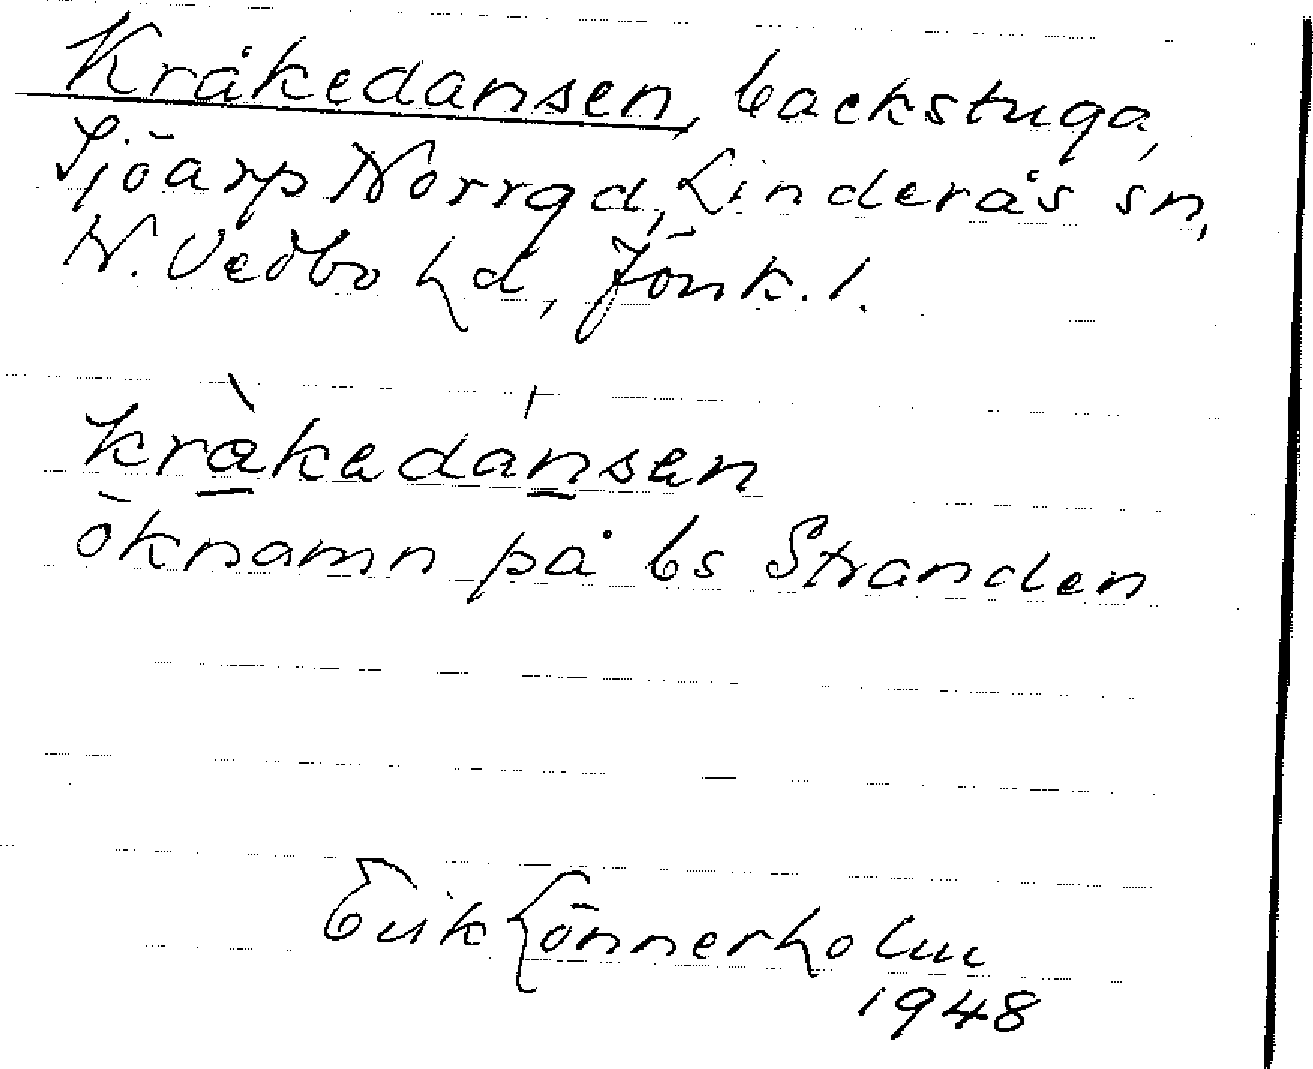 Kråkedansen, backstuga,
Sjöarp Norrgd, Linderås sn,
N. Vedbo hd, Jönk. l.
kråkadansen
öknamn på bs Stranden
Erik Lönnerholm
1948